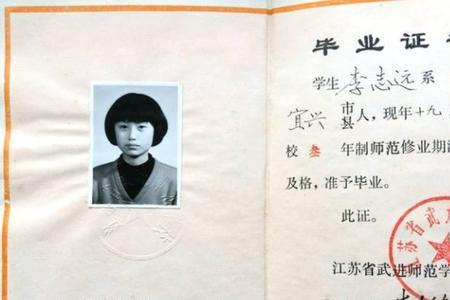 毕业证
学生 李志远 系
宜兴 市县人，现年十九
校 叁 年制师范修业期
及格，准予毕业。
此证。
江苏省武进师范学
江苏省武